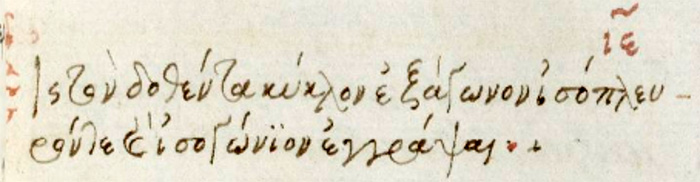 ιε
ις τὸν δοθέντα κύκλον ἑξάγωνον ἰσόπλευ-
ρόν τε καὶ ἰσογώνϊον ἐγγράψαι.